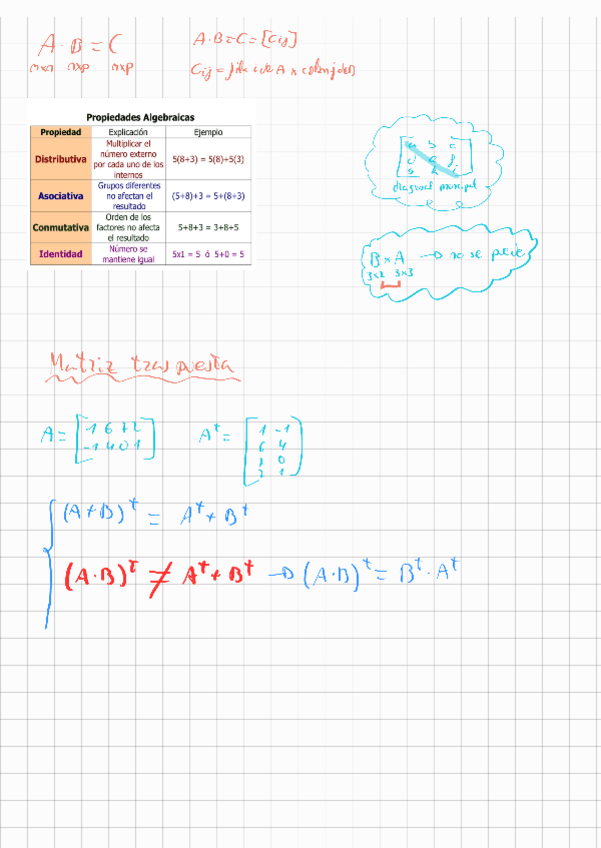 A · B = C
mxn nxp mxp
A·B=C=[Cij]
Cij = fila i de A x column j de B
Propiedades Algebraicas
Propiedad Explicación Ejemplo
Distributiva Multiplicar el número externo por cada uno de los internos 5(8+3) = 5(8)+5(3)
Asociativa Grupos diferentes no afectan el resultado (5+8)+3 = 5+(8+3)
Conmutativa Orden de los factores no afecta el resultado 5+8+3 = 3+8+5
Identidad Número se mantiene igual 5x1 = 5 ó 5+0 = 5
a b c
d e f
g h i
diagonal principal
B x A → no se puede
3x2 3x3
Matriz traspuesta
A = [1 6 1 2
-1 4 0 1]
Aᵗ = [1 -1
6 4
1 0
2 1]
(A+B)ᵗ = Aᵗ + Bᵗ
(A·B)ᵗ ≠ Aᵗ + Bᵗ → (A·B)ᵗ = Bᵗ · Aᵗ